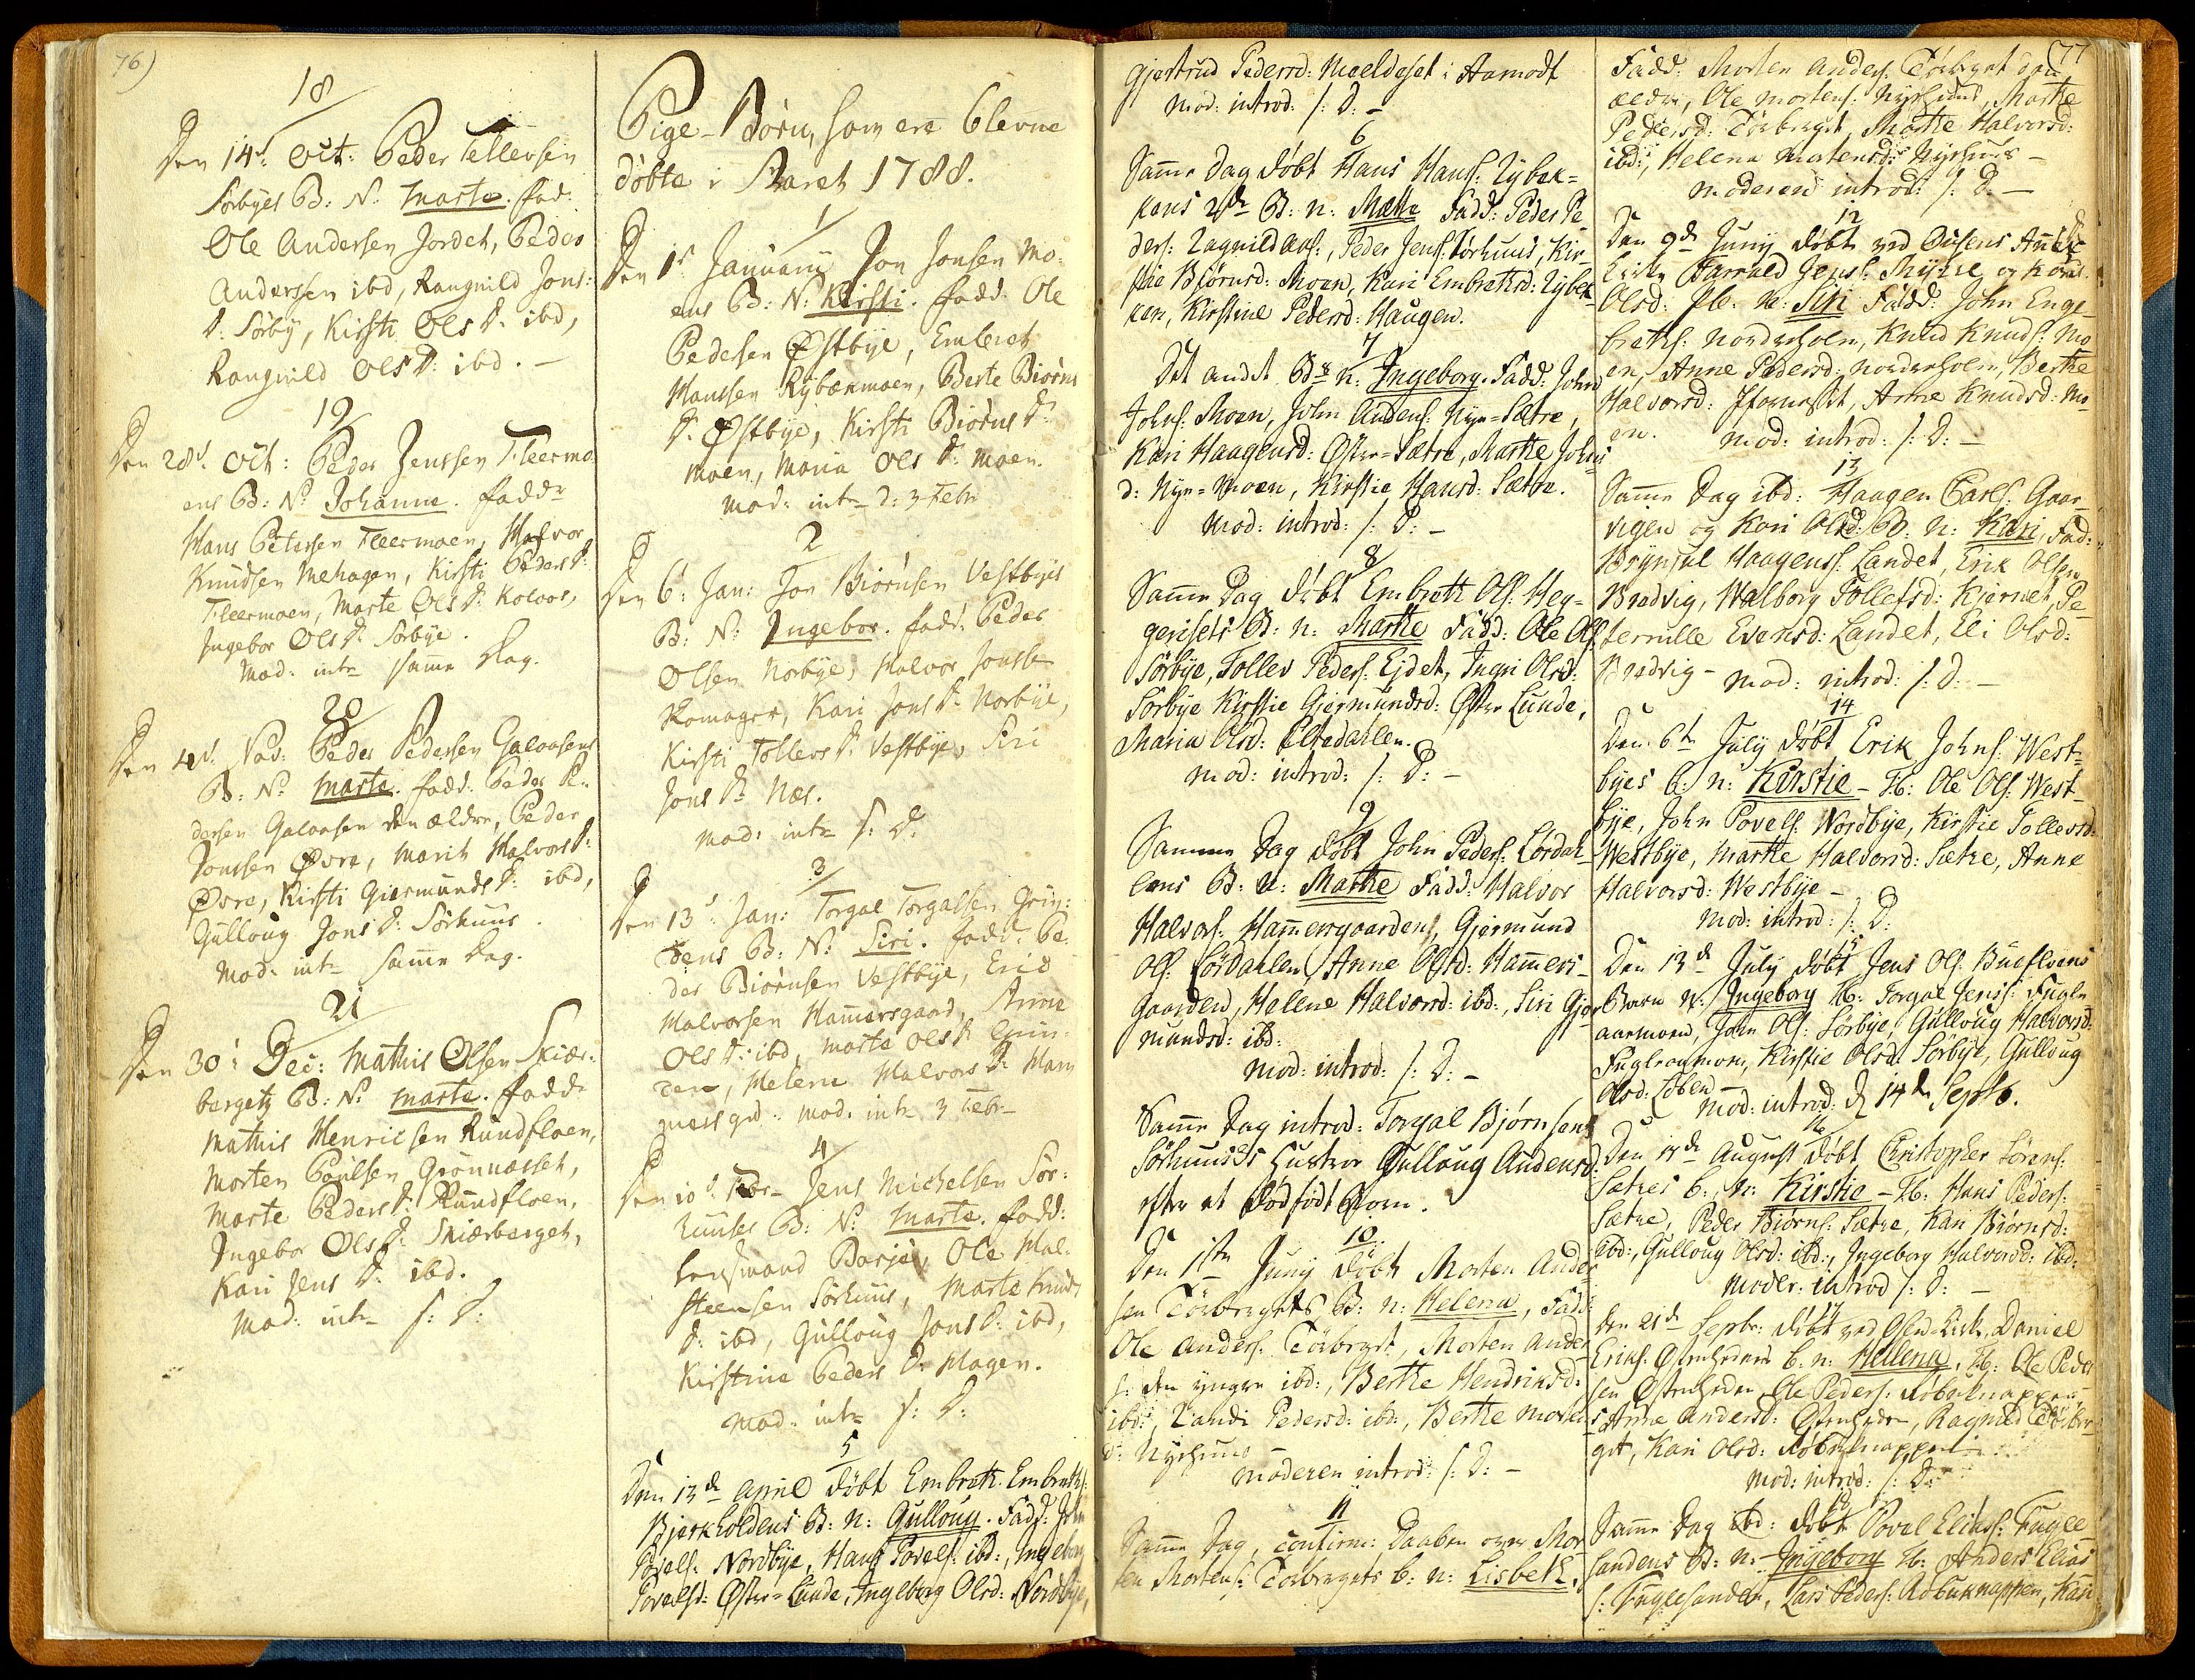 76)
18
Den 14d. Oct: Peder Tellevsen
Sörbyes B: N: Marte. fad:
Ole Andersen Jordet, Peder
Andersen ibd, Rangnild Jons:
D: Sörby, Kirsti Ols D: ibd,
Rangnild Ols D: ibd. -
19
Den 28d. Oct: Peder Jenssen Fleermo
ens B: N: Johanne. fadd:
Hans Petersen Fleermoen, Halvor
Knudsen Mehagen, Kirsti Peders D:
Fleermoen, Marte Ols D: Koloos,
Ingebor Ols D: Sörbye.
Mod: intr. samme Dag.
20
Den 4d. Nov: Peder Pedersen Galaasens
B: N: Marte. fadd: Peder Pe
dersen Galaasen den ældre, Peder
Jonssen Øvre, Marit Halvors D:
Øvre, Kirsti Giermunds D: ibd,
Gulloug Jons D: Sörhuus.
Mod: intr. samme Dag.
21
Den 30: Dec: Mathis Olsen Skiær-
bergets B: N: Marte. fadd:
Mathis Henricsen Rundfloen,
Morten Poulsen Grönnæsset,
Marte Peders D: Rundfloen,
Ingebor Ols D: Skiærberget,
Kari Jens D: ibd.
Mod: intr. s: D:
Pige-Börn, som ere blevne
döbte i Aaret 1788.
1
Den 1d Januarii Jon Jonsen Mo-
ens B: N: Kirsti. fadd: Ole
Pedersen Østbye, Embret
Hanssen Rybækmoen, Berte Biörns
D: Østbye, Kirsti Biörns D:
Moen, Maria Ols D: Moen.
Mod: intr. d: 3 Febr
2
Den 6: Jan: Jon Biörnsen Vestbyes
B: N: Ingebor. fadd: Peder
Olsen Norbye, Halvor Jonssen
Romager, Kari Jons D: Norbye,
Kirsti Tollevs D: Vestbye, Siri
Jons D: Næs.
Mod: intr. s: D:
3
Den 13d: Jan: Torgal Torgalsen Grin:
dens B: N: Siri. fadd: Pe-
der Biörnsen Vestbye, Eric
Halvorsen Hamersgaard, Anne
Ols D: ibd, Marte Ols D: Grin-
den, Helene Halvors D: Ham
mersgrd: mod: intr. 3 Febr
4
Den 10d. Febr. Jens Michelsen Sör-
huuses B: N: Marte. fadd:
Lensmand Basje, Ole Hal-
steensen Sörhuus, Marte Knuds
D: ibd, Gulloug Jons D: ibd,
Kirstine Peders D: Hagen.
Mod: intr. s: D:
5
Den 13de April döbt Embreth Embreths:
Bjerkholdens B: n: Gulloug. Fadd: John
Povels: Nordbye, Hans Povels: ibd:, Ingeborg
Povelsd: Øster-Lunde, Ingeborg Olsd: Nordbye,
77
Gjertrud Pedersd: Moeldeset i Aamodt
Mod: introd: s: D: -
6
Samme Dag döbt Hans Hans: Lybek=
kens 2de B: n: Mette Fadd: Peder Pe
ders: , Peder Jens: Sörhuus, Kir-
stie Björnsd: Moen, Kari Embrethsd: Lybek-
ken, Kirstine Pedersd: Haugen.
7
Det andet B: n: Ingeborg. Fadd: John
Johns: Moen, John Audens: Nye=Sætre,
Kari Haagensd: Øster=Sætre, Marthe Johns
d: Nye=Moen, Kirstie Hansd: Sætre.
Mod: introd: s: D: -
8
Samme Dag döbt Embreth Ols: Heg-
gerisets B: n: Marthe Fadd: Ole Ols:
Sörbye, Tollev Peders: Ejdet, Ingri Olsd:
Sörbye Kirstie Gjermundsd: Øster Lunde,
Maria Olsd: Eltedahlen.
Mod: introd: s: D: -
9
Samme Dag döbt John Peders: Lördah-
lens B: n: Marthe Fadd: Halvor
Halvors: Hamersgaarden, Gjermund
Ols: Lördahlen, Anne Olsd: Hamers-
gaarden, Helene Halvorsd: ibd:, Siri Gjer
mundsd: ibd:
Mod: introd: s: D: -
Samme Dag introd: Torgal Björnsens
Sörhuuses Hustroe Gulloug Audensd:
efter et dödfödt Barn.
10.
Den 1ste Junij döbt Morten Ander
sen Törbergets B: n: Helena, Fadd:
Ole Anders: Törberget, Morten Ander
s: den yngre ibd:, Berthe Hendriksd:
ibd:, Randi Pedersd: ibd:, Berthe Morten
d: Nyehuus -
Moderen introd: s: D: -
11
Samme Dag, confirm: Daaben over Mor
ten Mortens: Törbergets b: n: Lisbeth.
Fadd: Morten Anders: Törberget den
ældre, Ole Mortens: Nyehuus, Marthe
Pedersd: Törberget, Marthe Halvorsd:
ibd:, Helena Mortensd: Nyehuus -
Moderen introd: s: D: -
12
Den 9de Junij döbt ved Osens Annex
Kirke Harrald Jens: Myhre og Kari
Olsd: B: n: Siri Fadd: John Enge-
breths: Nordreholen, Knud Knuds: Mo
en, Anne Pedersd: Nordreholen, Berthe
Halvorsd: , Anne Knudsd: Mo
en. Mod: introd: s: D: -
13
Samme Dag ibd: Haagen Carls: Gaar-
vigen og Kari Olsd: B: n: Kari, Fad:
Brynjul Haagens: Landet, Erik Olsen
Bredvig, Walborg Tollefsd: Kjernet, Pe
ternille Evensd: Landet, Eli Olsd:
Bredvig - Mod: introd: s: D: -
14
Den 6te July döbt Erik Johns: West-
byes b: n: Kirstie - Fb: Ole Ols: West-
bye, John Povels: Nordbye, Kirstie Tollevsd:
Westbye, Marthe Halvorsd: Sætre, Anne
Halvorsd: Westbye -
Mod: introd: s: D:
15
Den 13de July döbt Jens Ols: Buefloens
Barn N: Ingeborg Fb: Torgal Jens: Fugle-
aasmoen, John Ols: Sörbye, Gulloug Halvorsd:
Fugleaasmoen, Kirstie Olsd: Sörbye, Gulloug
Olsd: Löben -
Mod: introd: d 14de Septb.
16
Den 17de August döbt Christopher Sörens:
Sætres b: n: Kirstie - Fb: Hans Peders:
Sætre, Peder Biörns: Sætre, Kari Biörnsd:
ibd:, Gulloug Olsd: ibd:, Ingeborg Halvorsd: ibd:
Moder: introd s: D: -
17
Den 21de Septbr: döbt ved Kirk, Daniel
Eriks: Østenhedens b: n: Hellena, Fb: Ole Peder
sen Östenheden, Ole Peders: Röbuknappen
, Anne Andersd: Östenheden, Ragnild Törber-
get, Kari Olsd: Röbuknappen
Mod: introd: s: D:
18
Samme Dag ibd: döbt Povel Elias: Fugle-
sandens B: n: Ingeborg Fb: Anders Elias
s: Fuglesanden, Lars Peders: Röbuknappen, Kari